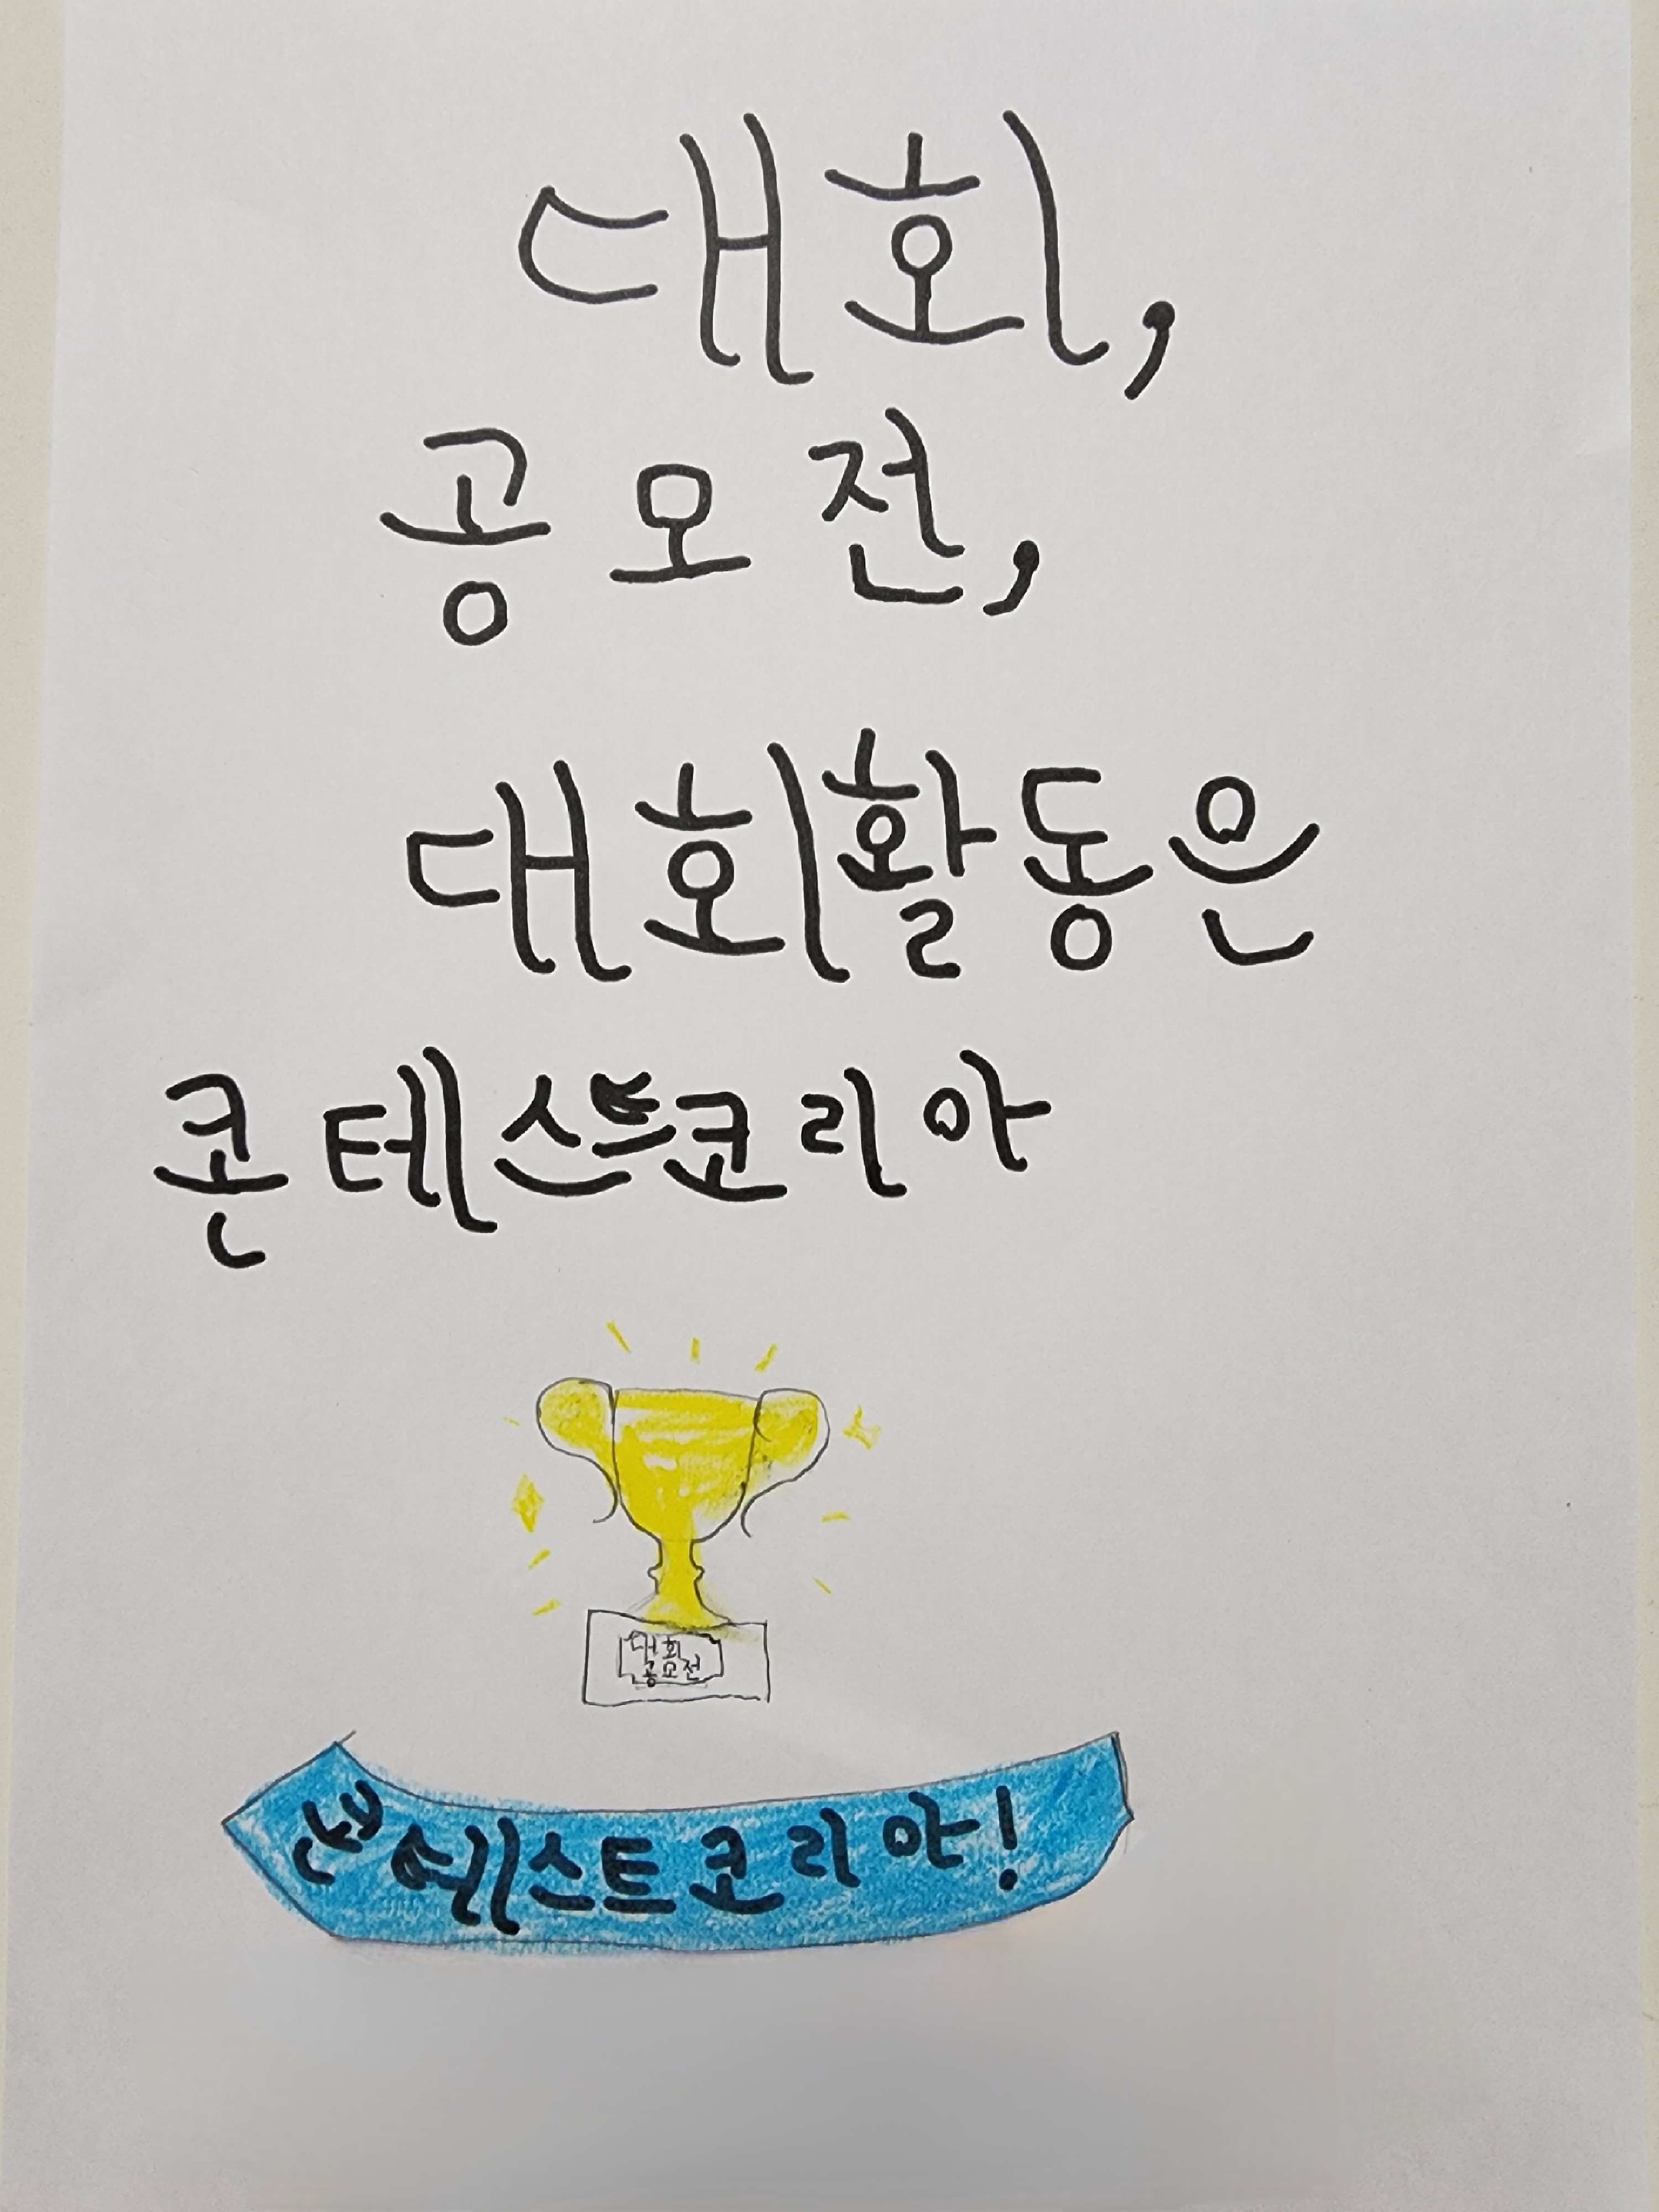 대회,
공모전,
대회활동은
콘테스트코리아
대회
공모전
콘테스트코리아!